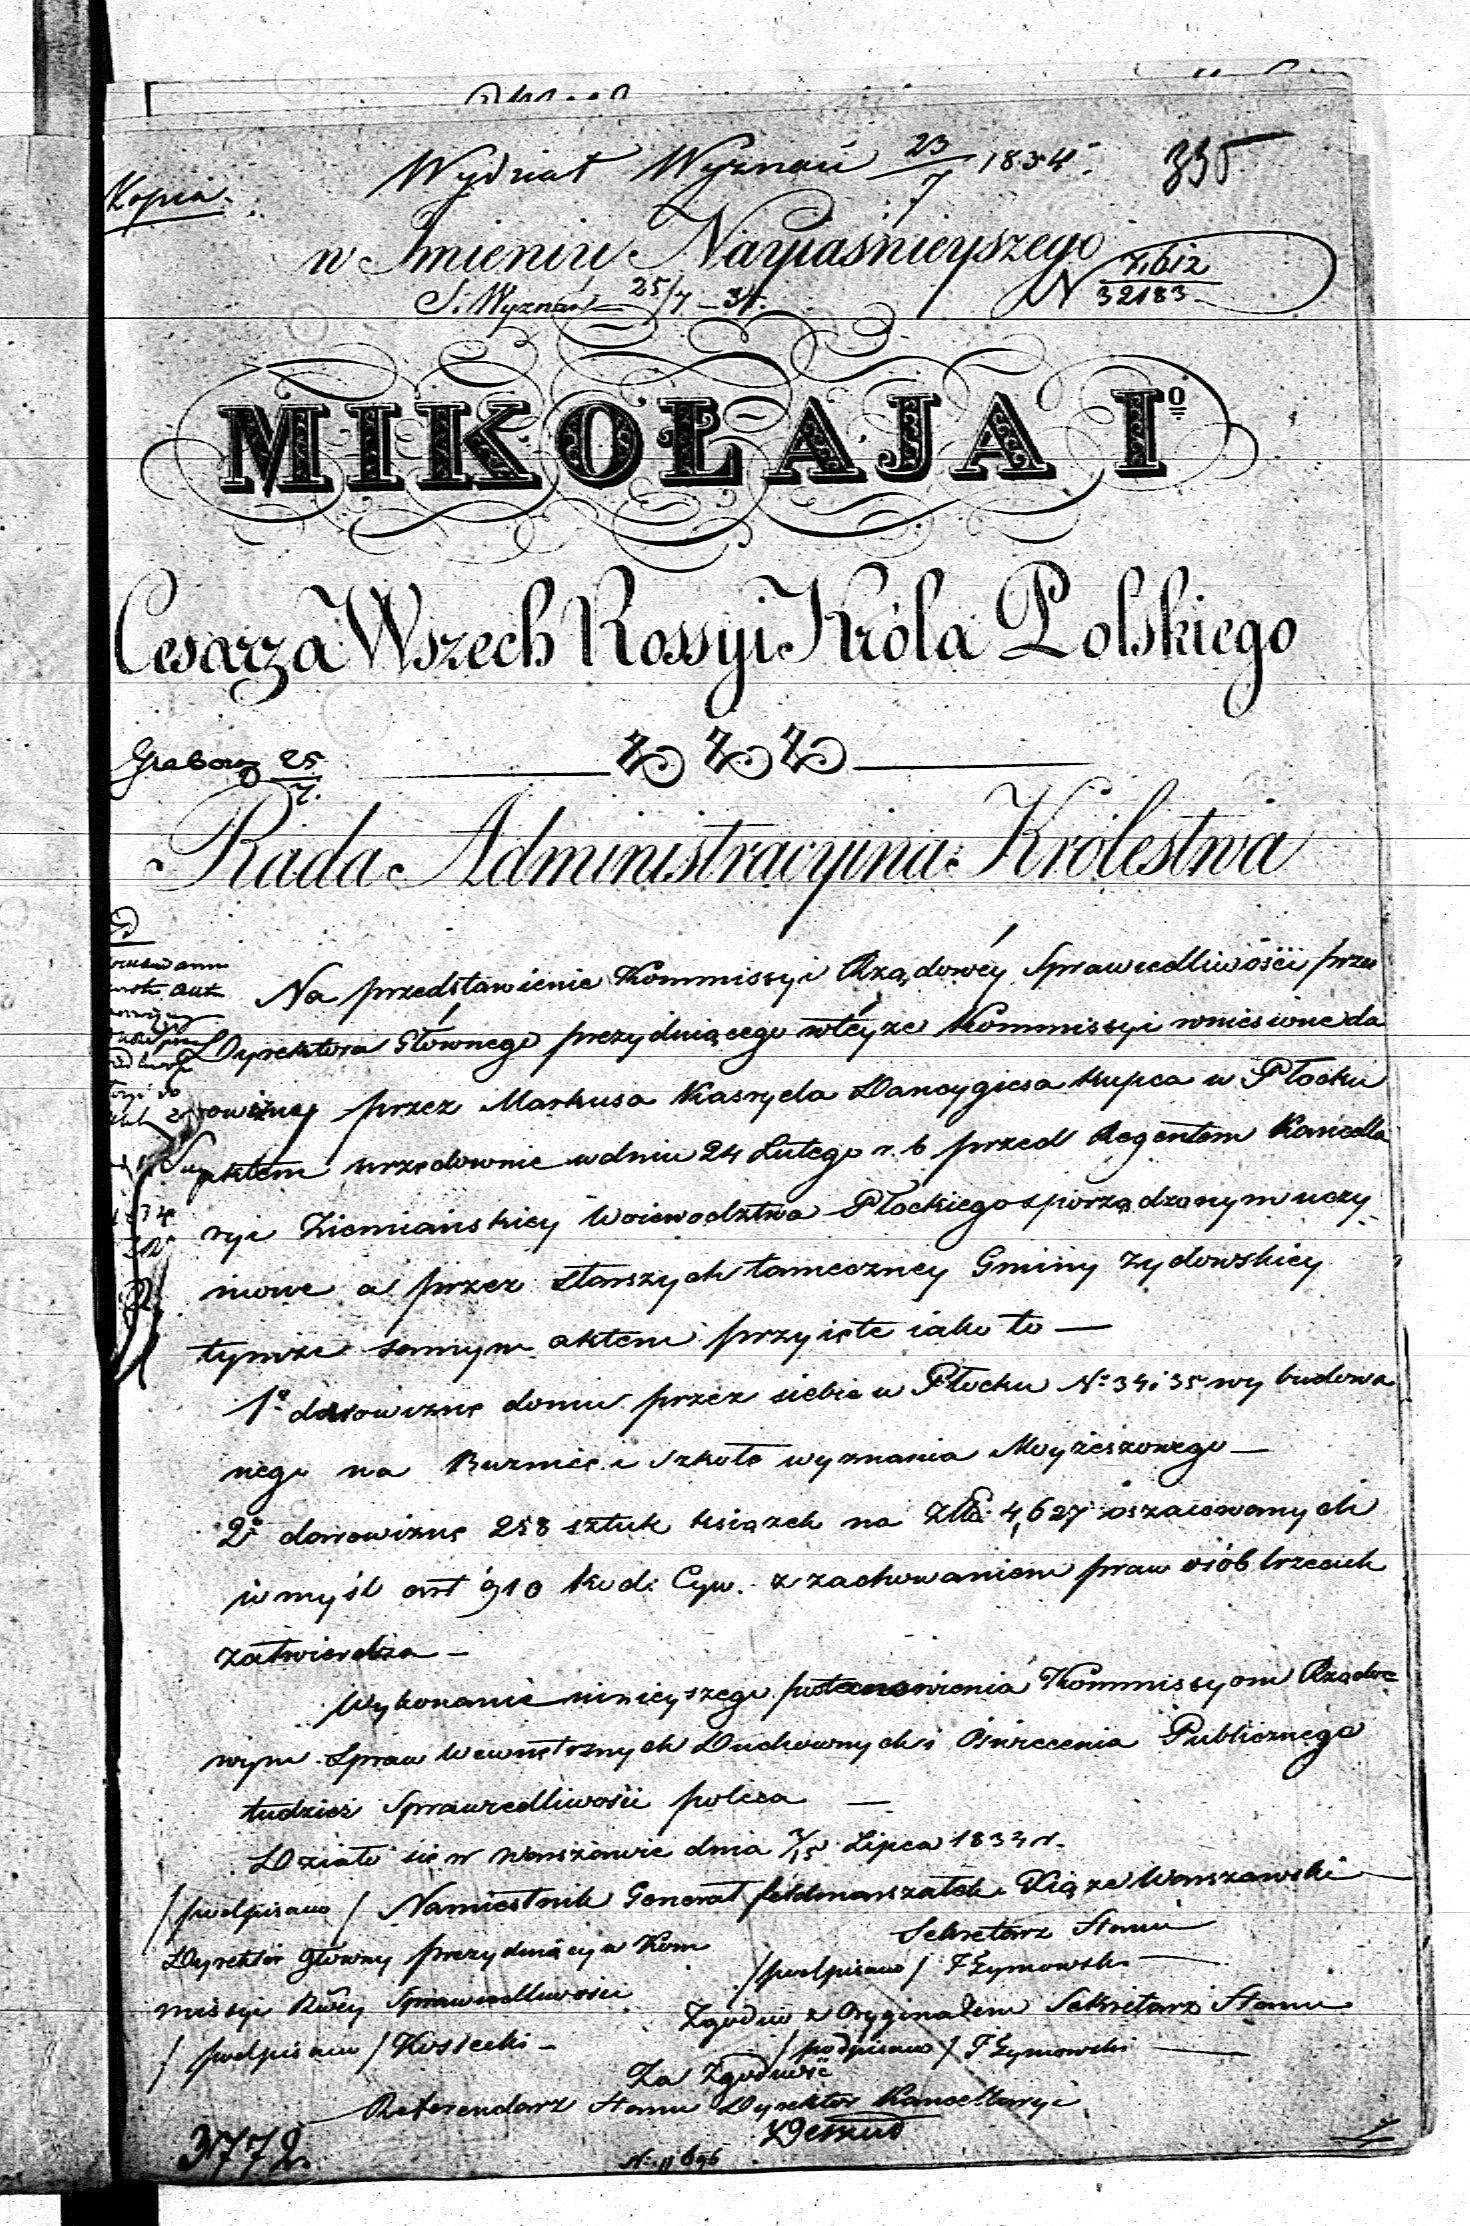 Kopia.
Wydział Wyznań 23/7 1834.
395
w Imieniu Nayiaśnieyszego
S. Wyznań 25/7 – 34.
N 7,612/32183
MIKOŁAJA Iº
Cesarza Wszech Rossyi Króla Polskiego
25/7.
Rada Administracyina Królestwa
Na przedstawienie Kommissyi Rządowéy Sprawiedliwości przez
Dyrektora Głównego prezyduiącego w téyże Kommissyi wniesione da
rowizny przez Markusa Kasryela Dancygiera Kupca w Płocku
aktem urzędownie w dniu 24 Lutego r. b przed Regentem Kancella
ryi Ziemiańskiey Woiewodztwa Płockiego sporządzonym uczy
nione a przez Starszych tameczney Gminy Zydowskiey
tymże samym aktem przyięte iako to —
1º darowiznę domu przez siebie w Płocku Nº 34 i 35 wybudowa
nego na Buznicę i Szkołę wyznania Moyżeszowego —
2º darowiznę 258 sztuk książek na Złł: 4,627 oszacowanych
w myśl art 910 Kod: Cyw. z zachowaniem praw osób trzecich
zatwierdza —
Wykonanie ninieyszego postanowienia Kommissyom Rządo
wym Spraw Wewnętrznych Duchownych i Oświecenia Publicznego
tudzież Sprawiedliwości poleca —
Działo się w Warszawie dnia 3/15 Lipca 1834 r.
/podpisano/ Namiestnik Generał feldmarszałek Xiąże Warszawski
Sekretarz Stanu
Dyrektor Główny prezyduiący w Kom
/podpisano/ J Tymowski
missyi Rwéy Sprawiedliwości
Zgodno z Oryginałem Sekretarz Stanu
/podpisano/ Kossecki –
/podpisano/ J Tymowski
Za Zgodność
Referendarz Stanu Dyrektor Kancellaryi
3772.